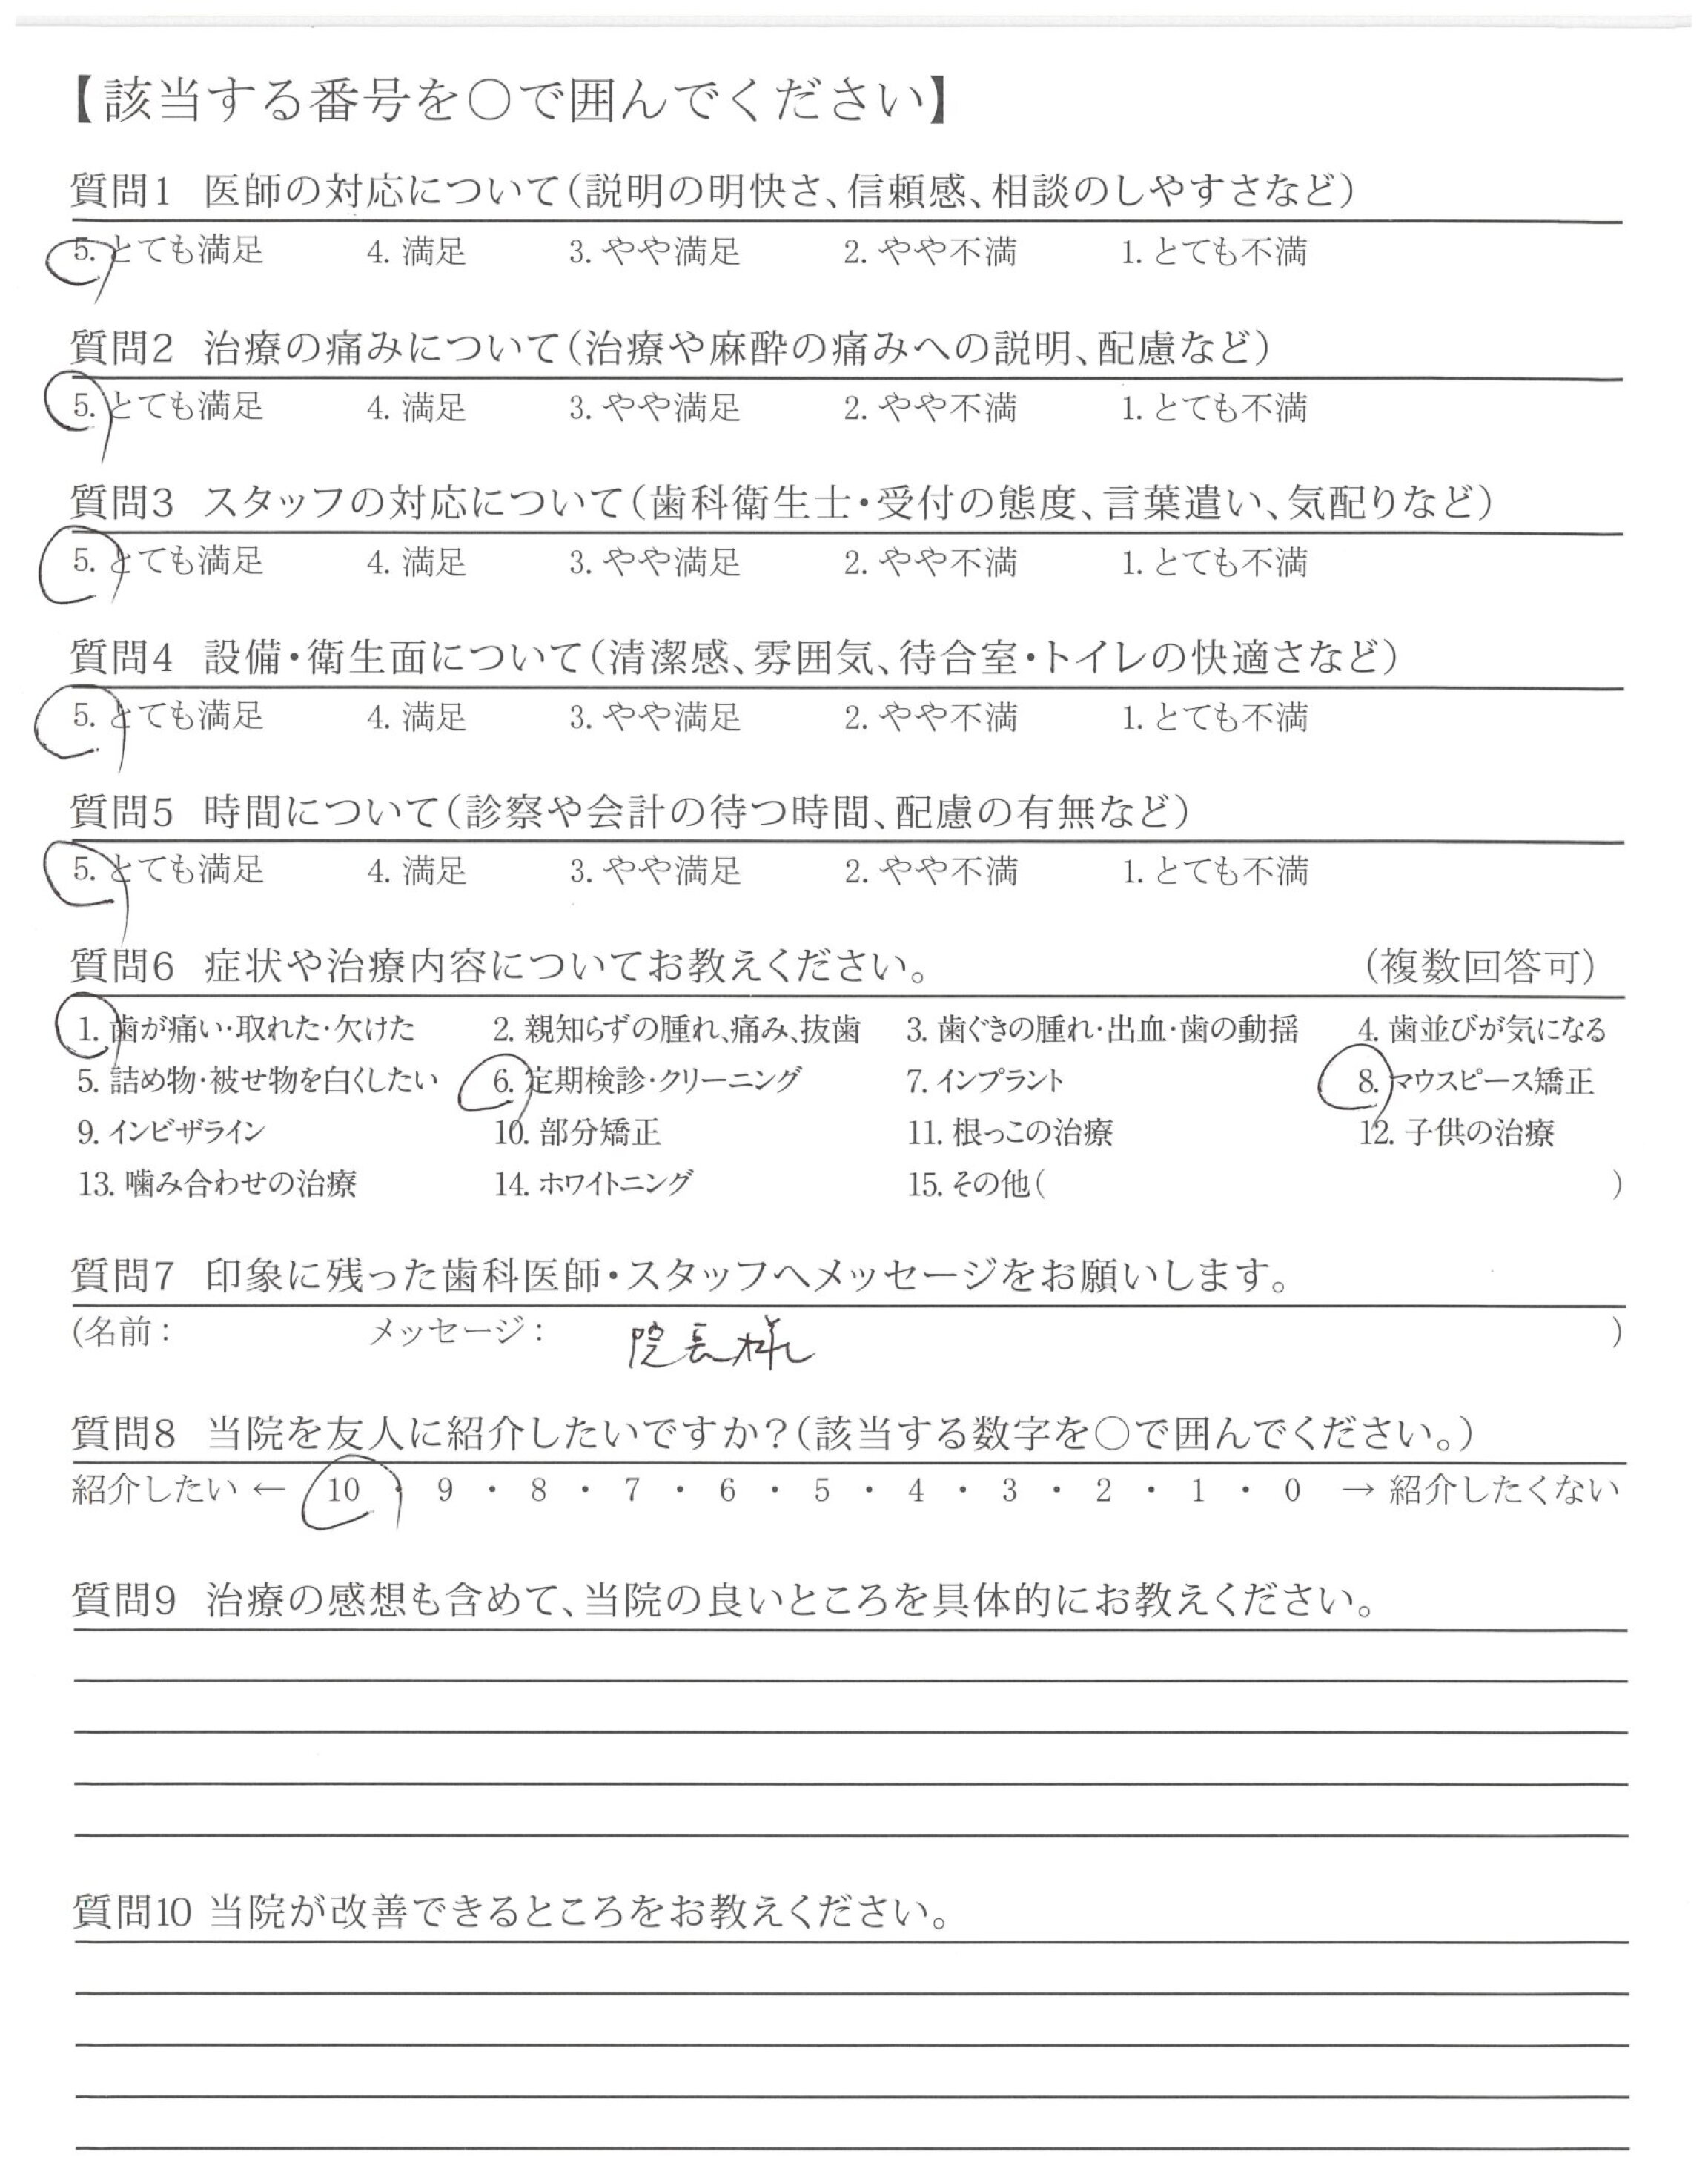 【該当する番号を○で囲んでください】
質問1 医師の対応について(説明の明快さ、信頼感、相談のしやすさなど)
5. とても満足 4. 満足 3. やや満足 2. やや不満 1. とても不満
質問2 治療の痛みについて(治療や麻酔の痛みへの説明、配慮など)
5. とても満足 4. 満足 3. やや満足 2. やや不満 1. とても不満
質問3 スタッフの対応について(歯科衛生士・受付の態度、言葉遣い、気配りなど)
5. とても満足 4. 満足 3. やや満足 2. やや不満 1. とても不満
質問4 設備・衛生面について(清潔感、雰囲気、待合室・トイレの快適さなど)
5. とても満足 4. 満足 3. やや満足 2. やや不満 1. とても不満
質問5 時間について(診察や会計の待つ時間、配慮の有無など)
5. とても満足 4. 満足 3. やや満足 2. やや不満 1. とても不満
質問6 症状や治療内容についてお教えください。 (複数回答可)
1. 歯が痛い・取れた・欠けた 2. 親知らずの腫れ、痛み、抜歯 3. 歯ぐきの腫れ・出血・歯の動揺 4. 歯並びが気になる
5. 詰め物・被せ物を白くしたい 6. 定期検診・クリーニング 7. インプラント 8. マウスピース矯正
9. インビザライン 10. 部分矯正 11. 根っこの治療 12. 子供の治療
13. 噛み合わせの治療 14. ホワイトニング 15. その他( )
質問7 印象に残った歯科医師・スタッフへメッセージをお願いします。
(名前: メッセージ: 院長様 )
質問8 当院を友人に紹介したいですか?(該当する数字を○で囲んでください。)
紹介したい ← 10 ・ 9 ・ 8 ・ 7 ・ 6 ・ 5 ・ 4 ・ 3 ・ 2 ・ 1 ・ 0 → 紹介したくない
質問9 治療の感想も含めて、当院の良いところを具体的にお教えください。
質問10 当院が改善できるところをお教えください。